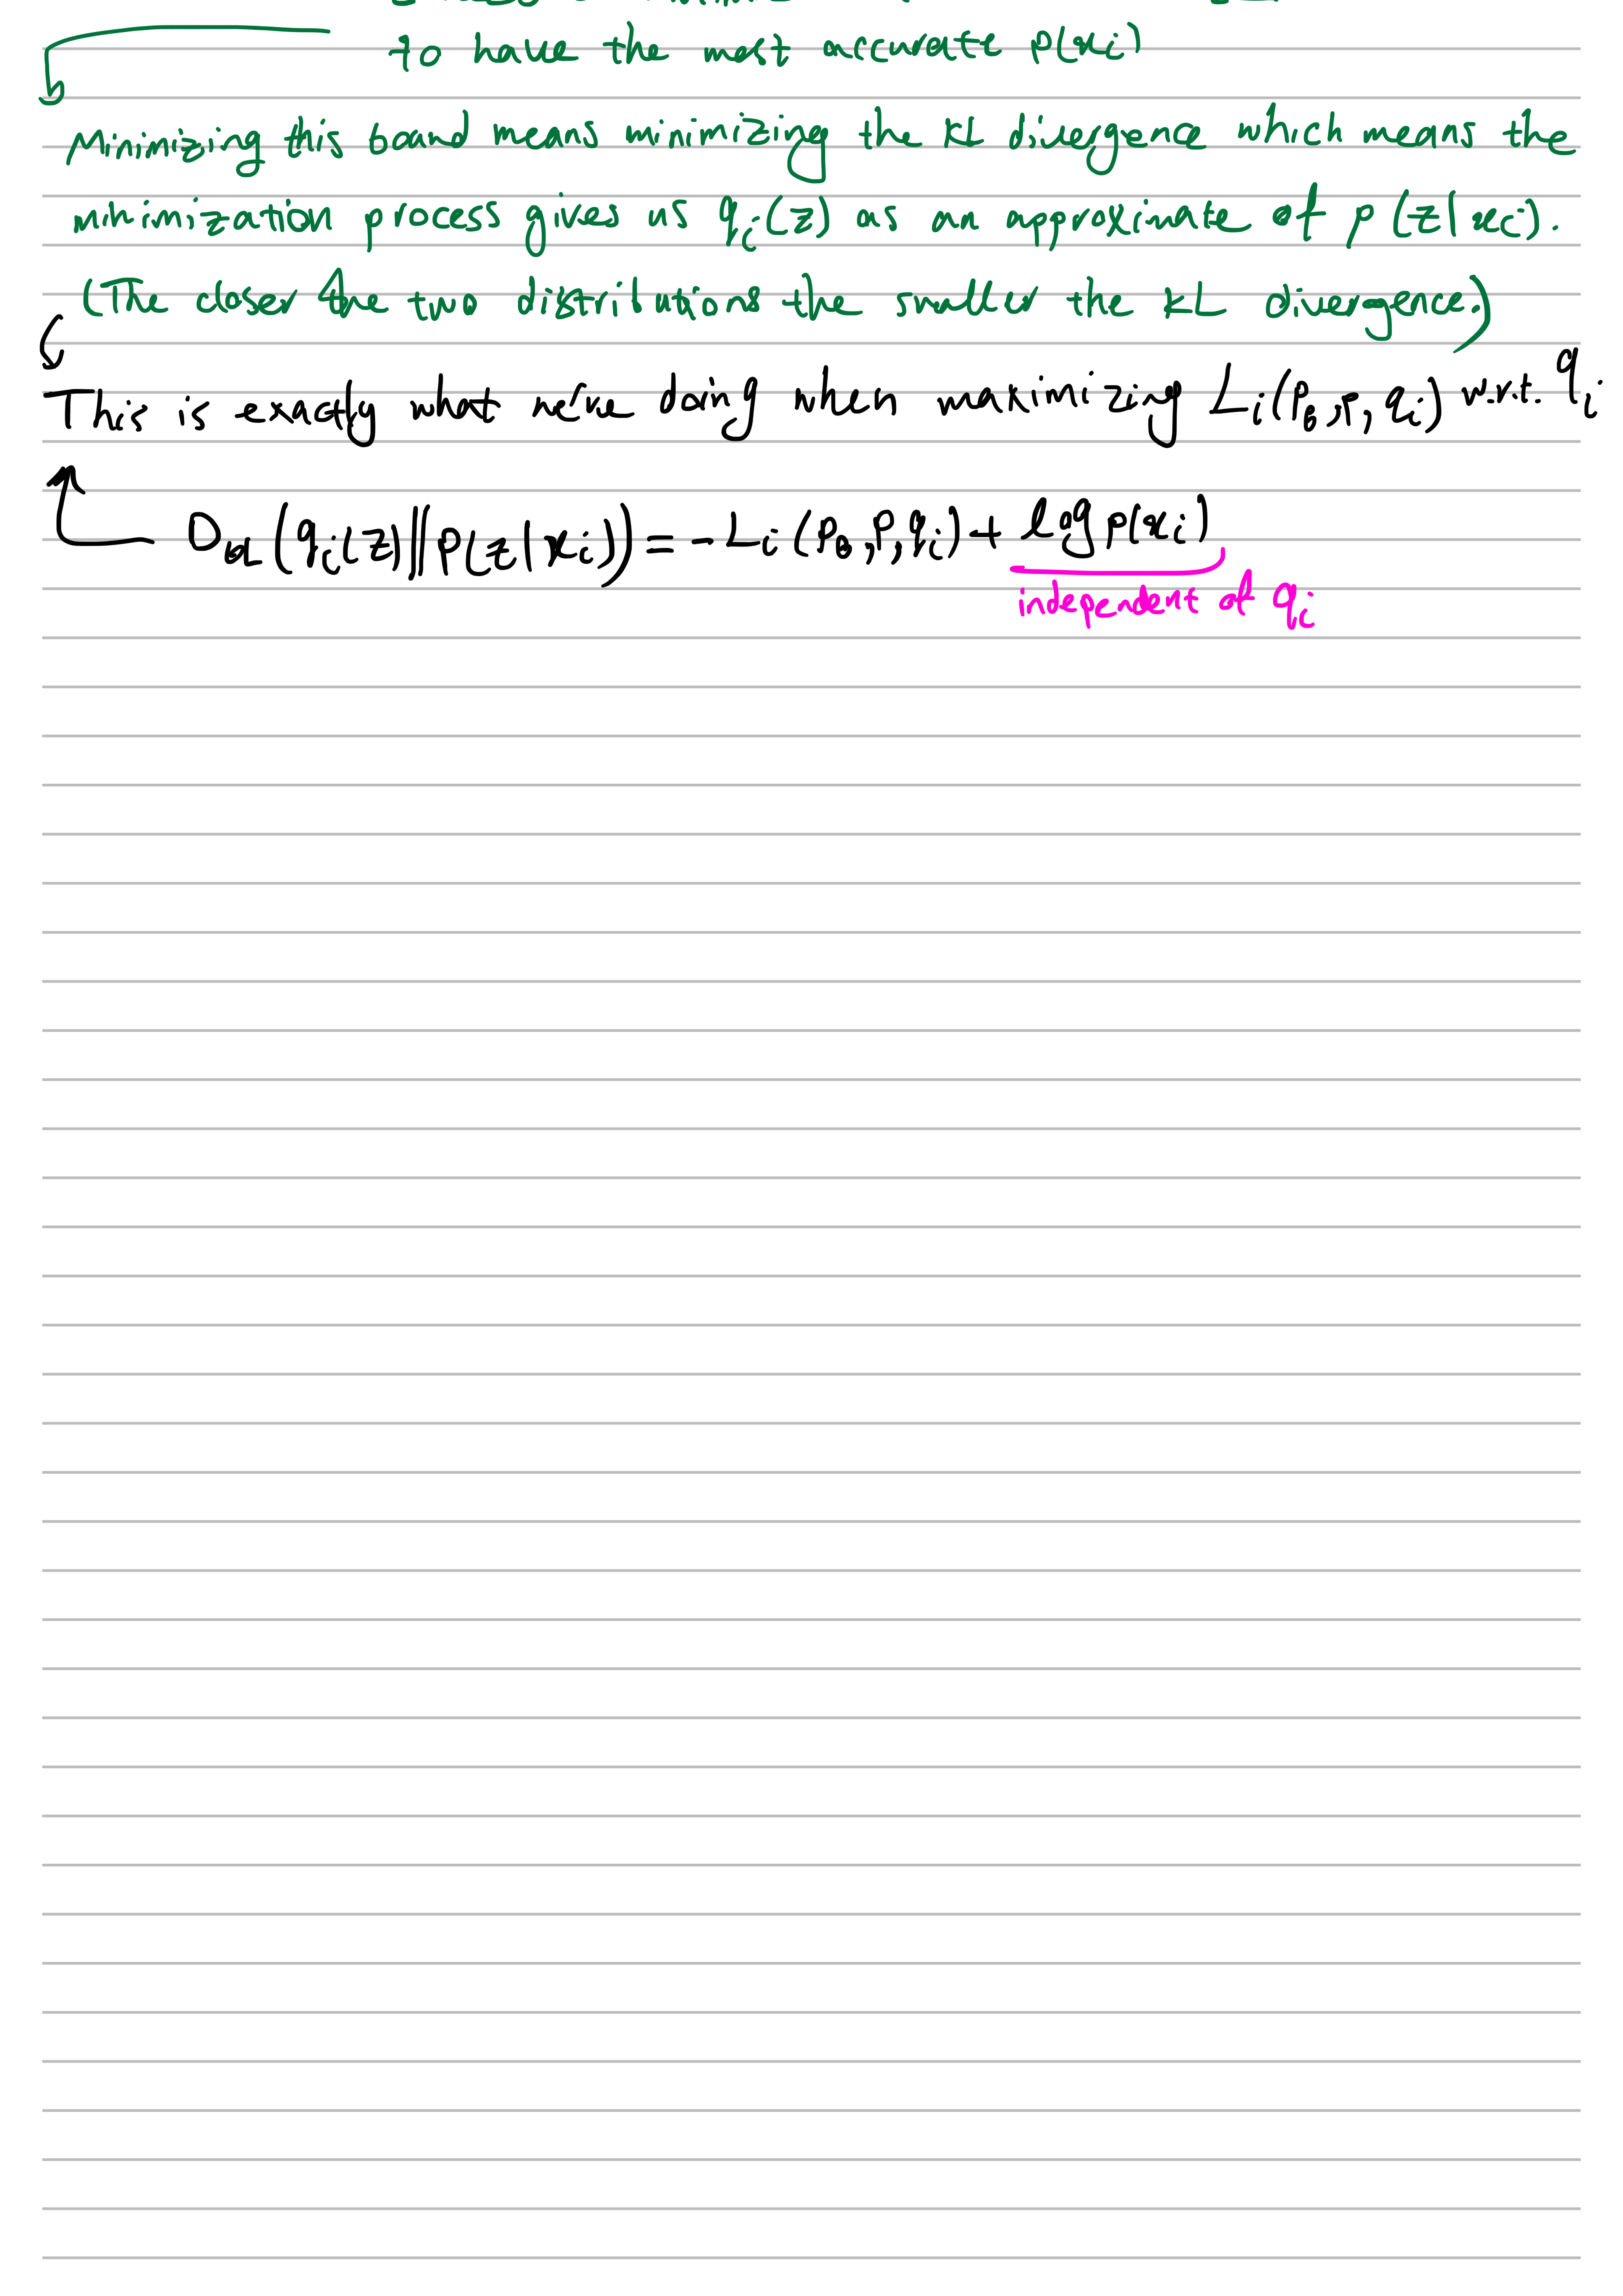 to have the most accurate p(x_i)
Minimizing this bound means minimizing the KL divergence which means the
minimization process gives us q_i(z) as an approximate of p(z|x_i).
(The closer the two distributions the smaller the KL divergence.)
This is exactly what we're doing when maximizing L_i(p_θ, p, q_i) w.r.t. q_i
D_KL(q_i(z)||p(z|x_i)) = -L_i(p_θ, p, q_i) + log p(x_i)
independent of q_i